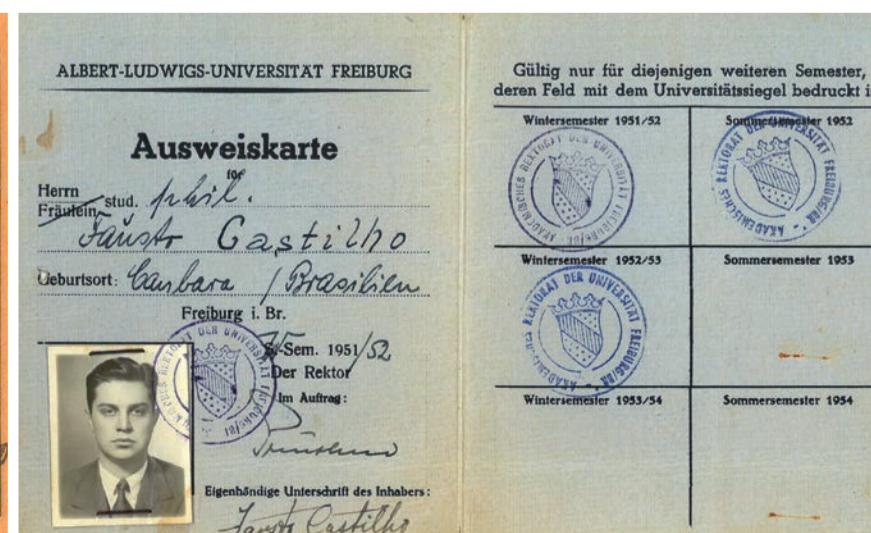 ALBERT-LUDWIGS-UNIVERSITÄT FREIBURG
Ausweiskarte
für
Herrn
Fräulein stud. phil.
Fausto Castilho
Geburtsort: Cambara / Brasilien
Freiburg i. Br.
S.-Sem. 1951/52
Der Rektor
Im Auftrag:
Eigenhändige Unterschrift des Inhabers:
Fausto Castilho
Gültig nur für diejenigen weiteren Semester,
deren Feld mit dem Universitätssiegel bedruckt i
Wintersemester 1951/52
Sommersemester 1952
AKADEMISCHES REKTORAT DER UNIVERSITÄT FREIBURG/BR
AKADEMISCHES REKTORAT DER UNIVERSITÄT FREIBURG/BR
Wintersemester 1952/53
Sommersemester 1953
AKADEMISCHES REKTORAT DER UNIVERSITÄT FREIBURG/BR
Wintersemester 1953/54
Sommersemester 1954